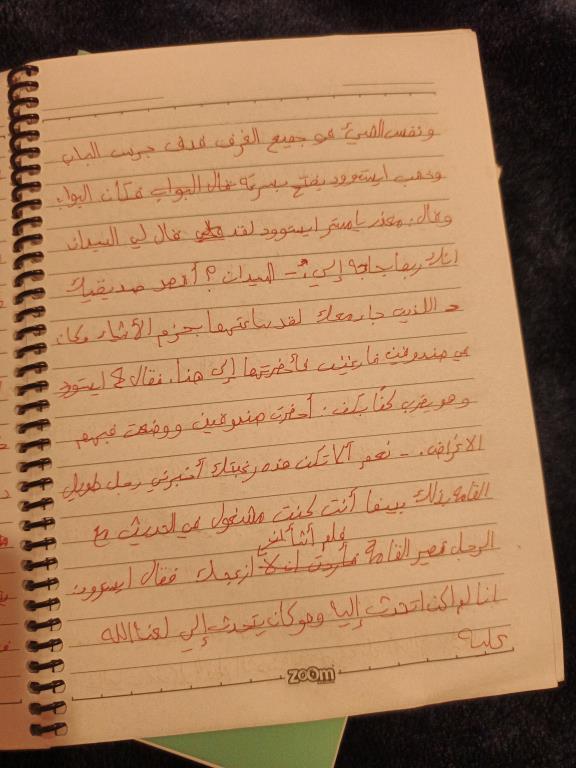 ونفس الشيئ هو جميع الغرف فدق جرس الباب
وذهب ايستوود يفتح بسرعة فكان البواب
وقال: معذر يا مستر ايستوود لقد قال لي السيدان
انك ربما بحاجة إلي - السيدان؟ أتقصد صديقيك
اللذين جاء معك لقد ساعدتهما بحزم الأشياء وكان
في صندوقين فارغين فأحضرتها إلى هنا. فقال ايستوود
وهو يضرب كفًا بكف: أحضرت صندوقين ووضعت فيهم
الاغراض. - نعم ألم تكن هذه رغبتك أخبرني رجل طويل
القامة بذلك بينما أنت كنت مشغول في الحديث مع
فلم أشأ لنفسي
الرجل قصير القامة ازعجك فقال ايستوود:
انا لم اكن اتحدث إليه وهو كان يتحدث إلي لعنة الله
عليه
zoom